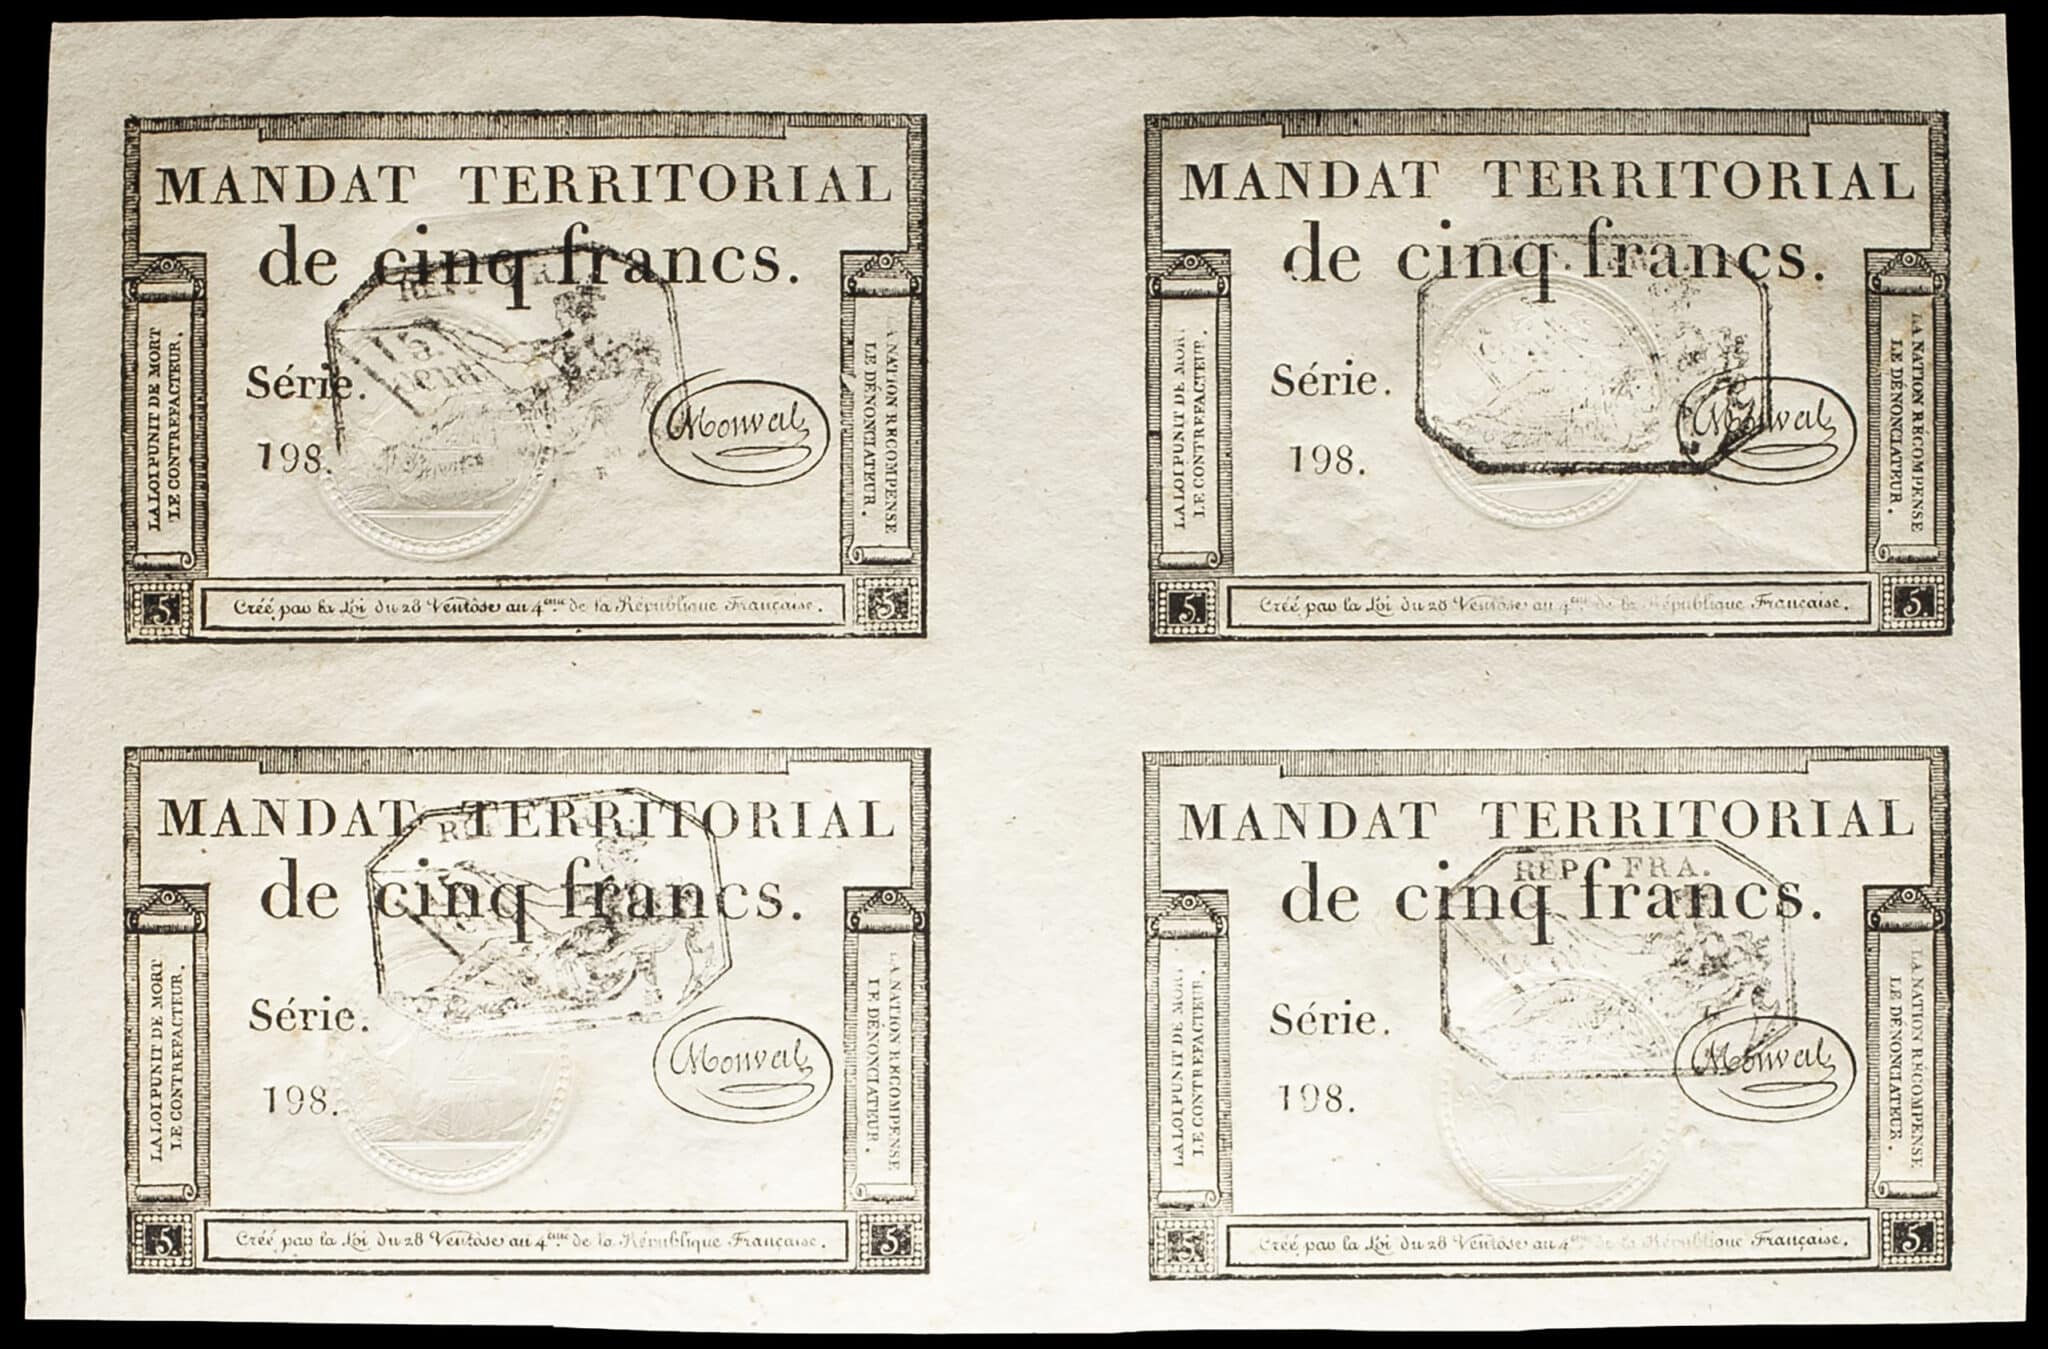 MANDAT TERRITORIAL
de cinq francs.
RÉP. FR
15.
cent
Série.
198.
Monval
LA LOI PUNIT DE MORT
LE CONTREFACTEUR.
LA NATION RÉCOMPENSE
LE DÉNONCIATEUR.
5.
Créé par la Loi du 28 Ventôse an 4ème. de la République Française.
5.
MANDAT TERRITORIAL
de cinq francs.
Série.
198.
Monval
LA LOI PUNIT DE MORT
LE CONTREFACTEUR.
LA NATION RÉCOMPENSE
LE DÉNONCIATEUR.
5.
Créé par la Loi du 28 Ventôse an 4ème. de la République Française.
5.
MANDAT TERRITORIAL
de cinq francs.
Série.
198.
Monval
LA LOI PUNIT DE MORT
LE CONTREFACTEUR.
LA NATION RÉCOMPENSE
LE DÉNONCIATEUR.
5.
Créé par la Loi du 28 Ventôse an 4ème. de la République Française.
5.
MANDAT TERRITORIAL
RÉP. FRA.
de cinq francs.
Série.
198.
Monval
LA LOI PUNIT DE MORT
LE CONTREFACTEUR.
LA NATION RÉCOMPENSE
LE DÉNONCIATEUR.
5.
Créé par la Loi du 28 Ventôse an 4ème. de la République Française.
5.